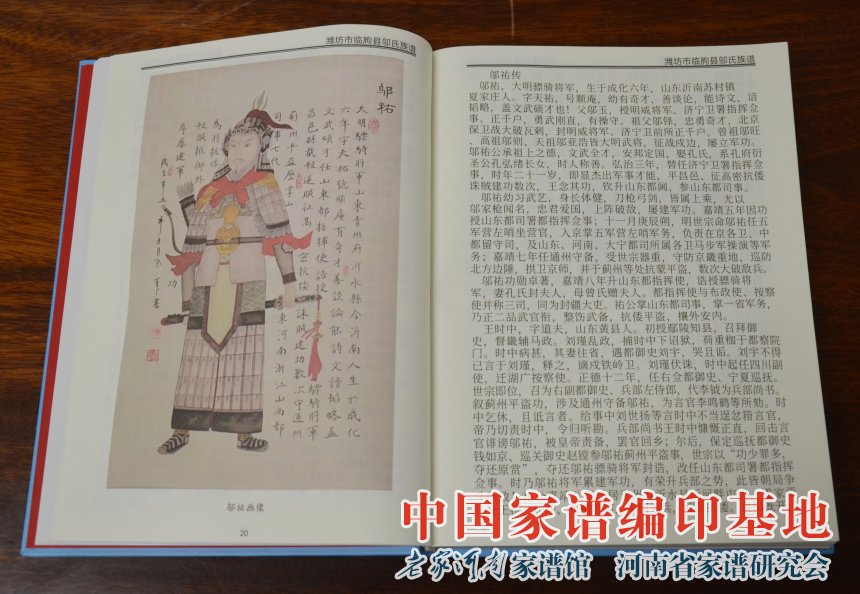 潍坊市临朐县邬氏族谱
邬祐
大明骠骑將軍山東青州府沂水縣今沂南人生於成化
六年字天祐號順庵有奇才善談論能詩文諳韜略盖
文武碩才仕山東都指揮使誥授驃騎將軍
邬祐画像
20
潍坊市临朐县邬氏族谱
邬祐传
邬祐，大明骠骑将军，生于成化六年，山东沂南苏村镇
夏家庄人。字天祐，号顺庵，幼有奇才，善谈论，能诗文，谙
韬略，盖文武硕才也！父邬玉，授明威将军、济宁卫署指挥佥
事、正千户，勇武刚直，有操守。祖父邬铎，忠勇奇才，北京
保卫战大破瓦剌，封明威将军、济宁卫前所正千户。曾祖邬旺
、高祖邬则、天祖邬亚浩皆大明武将，征战戍边，屡立军功。
邬祐公承祖上之德，文武全才，安邦定国，娶孔氏，系孔府衍
圣公孔弘绪长女，时人称善。弘治三年，替任济宁卫署指挥佥
事，时年二十一岁，即显杰出军事才能，平昌邑，征高密抗倭
诛贼建功数次，王念其功，钦升山东都阃，参山东都司事。
邬祐幼习武艺，身长体健，刀枪弓剑，皆属上乘，尤以
邬家枪闻名，忠君爱国，上阵破敌，屡建军功。嘉靖五年因功
授山东都司署都指挥佥事；十一月庚辰朔，明世宗命邬祐任五
军营左哨坐营官，入京掌五军营左哨军务，负责在京各卫、中
都留守司，及山东、河南、大宁都司所属各卫马步军操演等军
务；嘉靖七年任通州守备，受世宗器重，守防京畿重地，巡防
北方边陲，拱卫京师，并于蓟州等处抗蒙平盗，数次大破敌兵。
邬祐功勋卓著，嘉靖八年升山东都指挥使，诰授骠骑将
军，妻孔氏封夫人，母曾氏赠夫人。都指挥使与布政使、按察
使并称三司，同为封疆大吏。祐公掌山东都司事，掌一省军务，
乃正二品武官衔，整饬武备，抗倭平盗，攘外安内。
王时中，字道夫，山东黄县人。初授鄢陵知县，召拜御
史，督畿辅马政。刘瑾乱政，捕时中下诏狱，荷重枷于都察院
门。时中病甚，其妻往省，遇都御史刘宇，哭且诟。刘宇不得
已言于刘瑾，释之，谪戍铁岭卫。刘瑾伏诛，时中起任四川副
使，迁湖广按察使。正德十二年，任右佥都御史、宁夏巡抚。
世宗即位，召为右副都御史、兵部左侍郎，代李钺为兵部尚书。
叙蓟州平盗功，涉及通州守备邬祐，为言官李鸣鹤等所劾。时
中乞休，且诋言者。给事中刘世扬等言时中不当逞忿箝言官，
帝乃切责时中，令归听勘。兵部尚书王时中慷慨正直，回击言
官诽谤邬祐，被皇帝责备，罢官回乡；尔后，保定巡抚都御史
钱如京、巡关御史赵镗参邬祐蓟州平盗事，世宗以“功少罪多，
夺还原赏”，夺还邬祐骠骑将军封诰，改任山东都司署都指挥
佥事。时乃邬祐将军累建军功，有荣升兵部之势，此皆朝局争
中国家谱编印基地
老家河南家谱馆 河南省家谱研究会